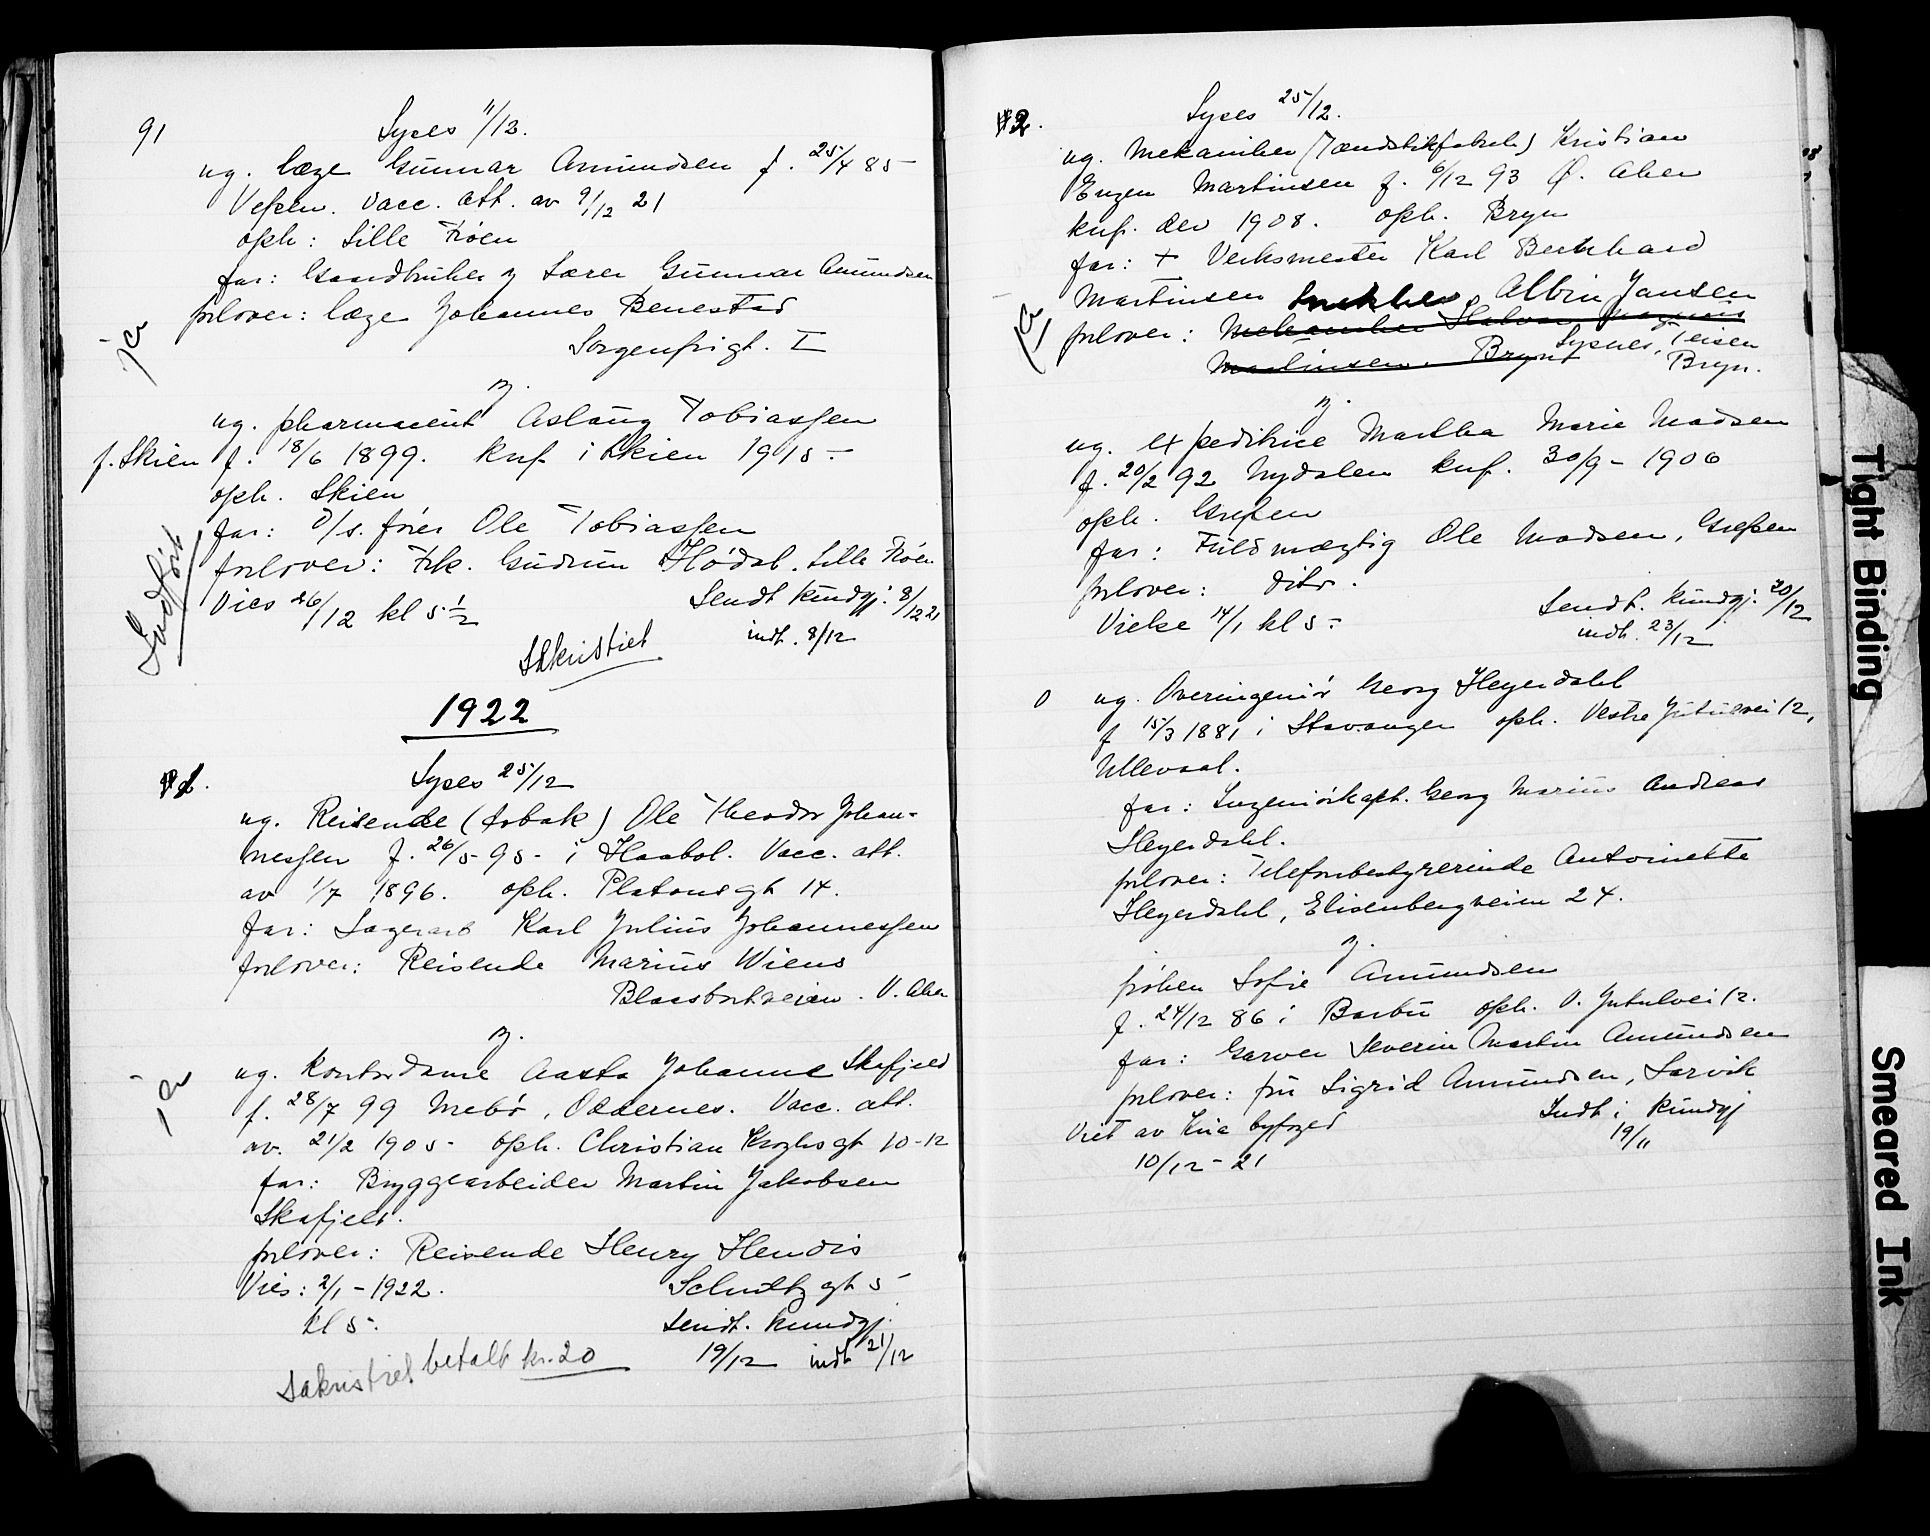 91
Lyses 11/12.
ug. læge Gunnar Amundsen f. 25/4 85
Vefsen. Vacc. att. av 9/12 21
oph: Lille Frøen
far: Gaardbruker og Lærer Gunnar Amundsen
forlover: læge Johannes Benestad
Sorgenfrigt. I
ja
og.
ug. pharmaceut Aslaug Tobiassen
f. Skien f. 18/6 1899. knf. i Skien 1915
oph. Skien
far: D/s. fører Ole Tobiassen
forlover: Frk. Gudrun Hødal. Lille Frøen
Indført
Vies 26/12 kl 5 1/2
Sendt kundgj. 8/12 21
indt. 8/12
Sakristiet
1922
1.
Lyses 25/12
ug. Reisende (tobak) Ole Theodor Johan-
nessen f. 26/5 95 i Haabøl. Vacc. att.
av 1/7 1896. oph. Platousgt 14.
far: Lagerarb Karl Julius Johannessen
forlover: Reisende Marius Wiens
Blaasbortveien. V. Aker
og.
ja
ug. Kontordame Aasta Johanne Skafjeld
f. 28/7 99 Mebø, Oddernes. Vacc. att.
av. 21/2 1905 oph. Christian Kroghsgt 10-12
far: Bryggearbeider Martin Jakobsen
Skafjeld.
forlover: Reisende Henry Hendis
Vies: 2/1 - 1922.
Schultzgt 5
kl 5.
Sendt. kundgj.
19/12 indt 21/12
Sakristiet betalt kr. 20
2.
Lyses 25/12.
ug. Mekaniker (Tændstikfabrik) Kristian
Eugen Martinsen f. 6/12 93 Ø. Aker
knf. der 1908. oph. Bryn
far: + Verksmester Karl Bernhard
Martinsen Snekker Albin Jansen
ja
forlover: Mekaniker Halvor Magnus
Lysnes, Teisen
Martinsen. Bryn
Bryn.
og.
ug. expeditrice Martha Marie Madsen
f. 20/2 92 Nydalen knf. 30/9 - 1906
oph. Grefsen
far: Fuldmægtig Ole Madsen, Grefsen
forlover: dito.
Vielse 14/1 kl 5
Sendt. kundgj. 20/12
indt. 23/12
0
ug. Overingeniør Georg Heyerdahl
f 15/3 1881 i Stavanger oph. Vestre Jutulvei 12,
Ullevaal.
far: Ingeniørkapt. Georg Marius Andreas
Heyerdahl.
forlover: Telefonbestyrerinde Antoinette
Heyerdahl, Elisenbergveien 24.
og.
frøken Sofie Amundsen
f. 24/12 86 i Barbu oph. V. Jutulvei 12.
far: Garver Severin Martin Amundsen
forlover: fru Sigrid Amundsen, Larvik
Viet av Kria byfoged
Indt i kundgj
19/11
10/12 - 21
Tight Binding
Smeared Ink